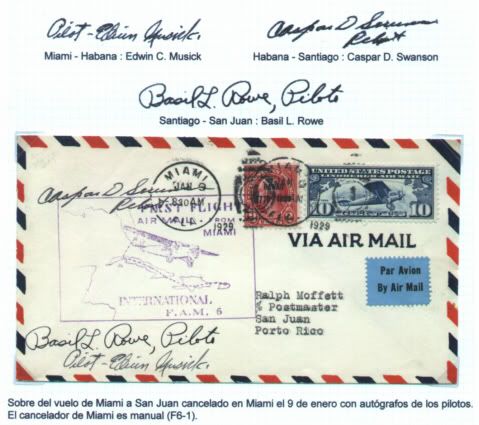 Pilot - Edwin Musick.
Caspar D Swanson
Pilot
Miami - Habana : Edwin C. Musick
Habana - Santiago : Caspar D. Swanson
Basil L. Rowe, Piloto
Santiago - San Juan : Basil L. Rowe
Caspar D Swanson
Pilot
MIAMI
JAN 9
8 30 AM
1929
FLA.
FIRST FLIGHT
AIR MAIL FROM
MIAMI
INTERNATIONAL
F.A.M. 6
UNITED STATES POSTAGE
LINDBERGH AIR MAIL
10 10
1929
VIA AIR MAIL
Par Avion
By Air Mail
Ralph Moffett
% Postmaster
San Juan
Porto Rico
Basil L. Rowe, Piloto
Pilot - Edwin Musick.
Sobre del vuelo de Miami a San Juan cancelado en Miami el 9 de enero con autógrafos de los pilotos.
El cancelador de Miami es manual (F6-1).